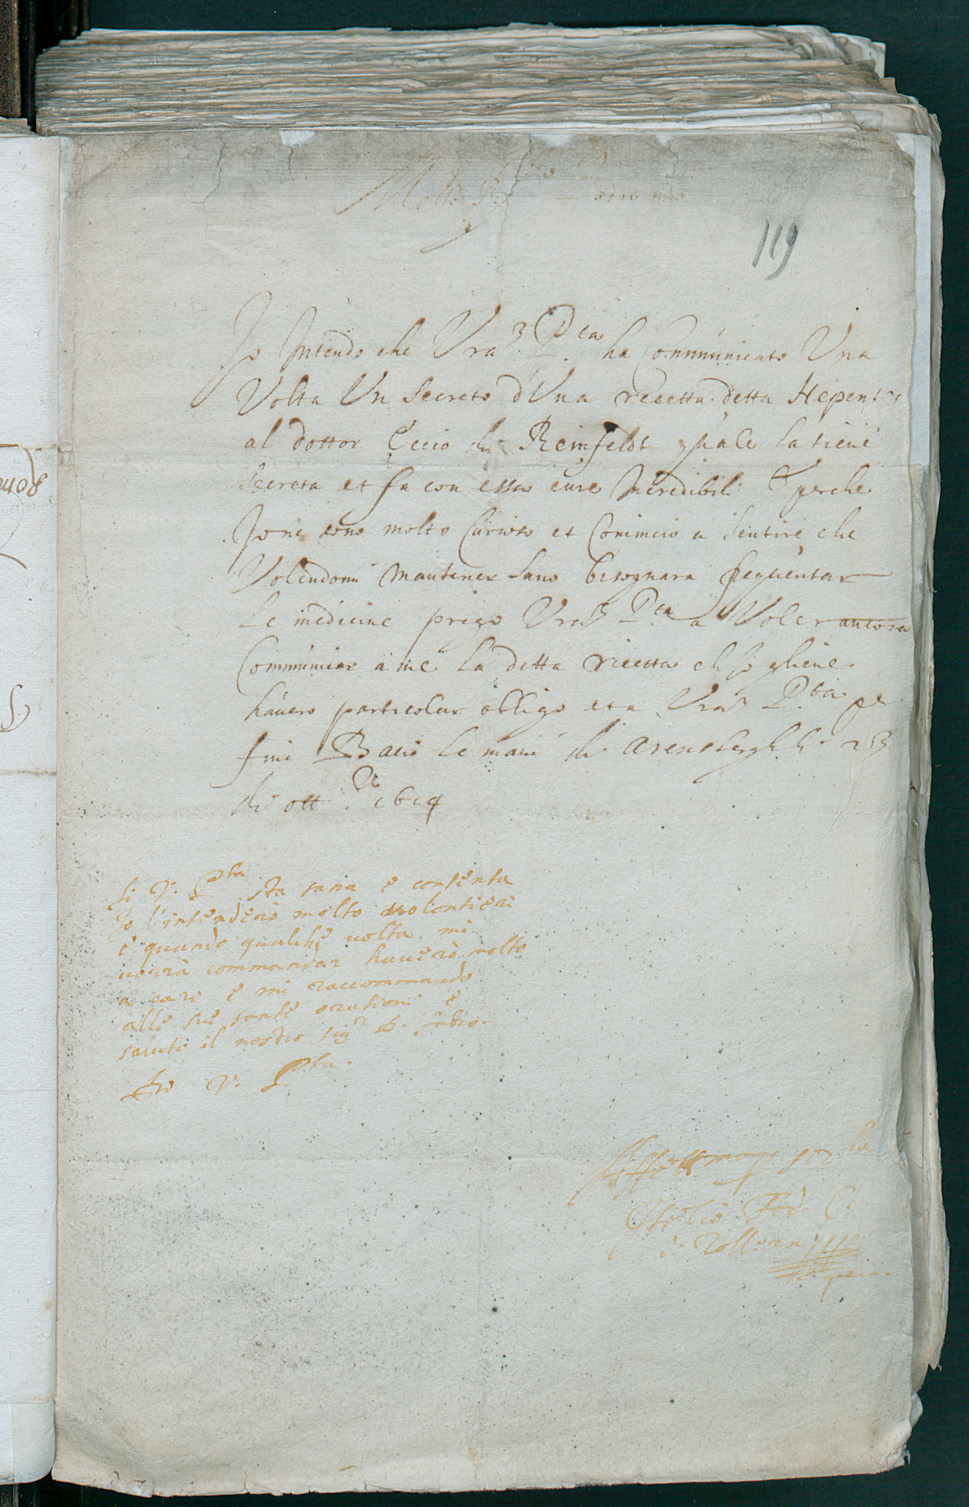 Molto
119
Io Intendo che Vra P.ta ha Communicato Una
Volta Un Secreto dVna recetta detta Nepent
al dottor Eccio di Reinfeldt quale la tiene
Secreta et fa con essa cure Incredibili & perche
Io ne sono molto Curioso et Comincio a Sentire che
Volendomi Mantener Sano bisognara frequentar
Le medicine prego Vra P.ta a Voler ancora
Communicar a me la detta ricetta che gliene
havero particolar obligo et a Vra P.ta per
fine Bacio le mani di Arensbergh li 23
di ott. 1614
Si V. P.ta sta sana e contenta
Io l'intenderò molto volontieri
e quando qualche uolta mi
uorrà commandar hauerò molto
a caro e mi raccommando
alle sue sante orationi e
saluti il nostro sig.r
Di V. P.ta
Affett.mo per